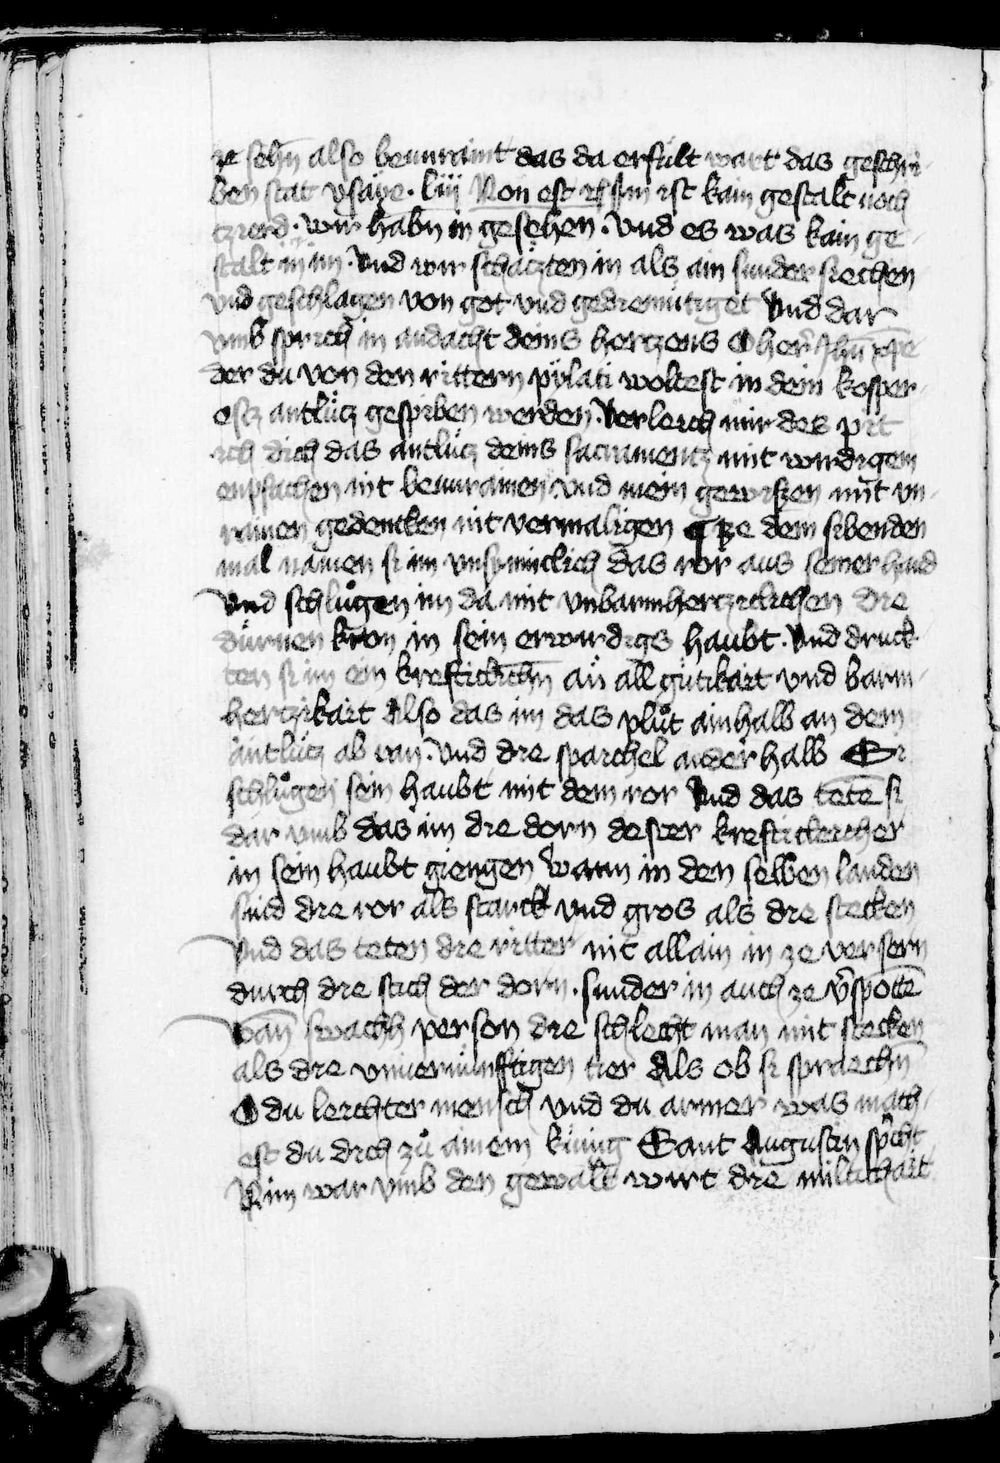 ze sehn̄ also beunraint das da erfült wart das geschri-
ben stat ysaye · liij Non est rc̄ Im ist kain gestalt noch
tzierd · wir habn̄ in gesehen · Vnd es was kain ge-
stalt in im · Vnd wir schätzten in als ain sunder siechen
vnd geschlagen von got vnd gediemütiget Vnd dar
vmb sprich in andacht deins hertzens O her ihū xpe
der du von den rittern pylati woltest in dein kosper-
antlütz gespirben werden · Verleich mir des pit
ich dich das antlütz deins sacramentz mit wirdigem
enpfachen nit beunrainen vnd mein gewissen mit vn-
rainen gedencken nit vermaligen ¶ Ze dem sibenden
mal namen si im vnsinniclich das ror aus seiner hand
Vnd schlůgen im da mit vnbarmhertziclichen die
dürnen kron in sein erwirdigs haubt · Vnd druck-
ten si im ein krefticlichn̄ an all gütikait vnd barm-
hertzikait Also das im das plůt ainhalb an dem
antlütz ab ran · Vnd die spaichel anderhalb Si
schlůgen sein haubt mit dem ror Vnd das tetē si
dar vmb das im die dorn dester krefticleicher
in sein haubt giengen Wann in den selben landen
sind die ror als starck vnd gros als die stecken
Vnd das teten die ritter nit allain in ze versern
durch die stich der dorn · sunder in auch ze v̄spottē
Van̄ swachh person die schlecht man mit stecken
als die vnuernünfftigen tier Als ob si spraechn̄
O du leichter mensch vnd du armer was mach-
est du dich zů ainem künig Sant Augustin sp̄cht
Nim war vmb den gewalt wirt die miltichait